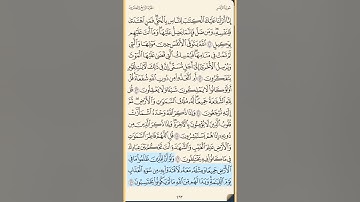 سورة الزمر
الجزء الرابع والعشرون
إِنَّا أَنزَلْنَا عَلَيْكَ الْكِتَٰبَ لِلنَّاسِ بِالْحَقِّ فَمَنِ اهْتَدَىٰ
فَلِنَفْسِهِ وَمَن ضَلَّ فَإِنَّمَا يَضِلُّ عَلَيْهَا وَمَا أَنتَ عَلَيْهِم
بِوَكِيلٍ ٤١ اللَّهُ يَتَوَفَّى الْأَنفُسَ حِينَ مَوْتِهَا وَالَّتِي
لَمْ تَمُتْ فِي مَنَامِهَا فَيُمْسِكُ الَّتِي قَضَىٰ عَلَيْهَا الْمَوْتَ
وَيُرْسِلُ الْأُخْرَىٰ إِلَىٰ أَجَلٍ مُّسَمًّى إِنَّ فِي ذَٰلِكَ لَآيَٰتٍ لِّقَوْمٍ
يَتَفَكَّرُونَ ٤٢ أَمِ اتَّخَذُوا مِن دُونِ اللَّهِ شُفَعَاءَ قُلْ
أَوَلَوْ كَانُوا لَا يَمْلِكُونَ شَيْئًا وَلَا يَعْقِلُونَ ٤٣ قُل
لِّلَّهِ الشَّفَٰعَةُ جَمِيعًا لَّهُ مُلْكُ السَّمَٰوَٰتِ وَالْأَرْضِ ثُمَّ
إِلَيْهِ تُرْجَعُونَ ٤٤ وَإِذَا ذُكِرَ اللَّهُ وَحْدَهُ اشْمَأَزَّتْ
قُلُوبُ الَّذِينَ لَا يُؤْمِنُونَ بِالْآخِرَةِ وَإِذَا ذُكِرَ الَّذِينَ مِن
دُونِهِ إِذَا هُمْ يَسْتَبْشِرُونَ ٤٥ قُلِ اللَّهُمَّ فَاطِرَ السَّمَٰوَٰتِ
وَالْأَرْضِ عَٰلِمَ الْغَيْبِ وَالشَّهَٰدَةِ أَنتَ تَحْكُمُ بَيْنَ عِبَادِكَ
فِي مَا كَانُوا فِيهِ يَخْتَلِفُونَ ٤٦ وَلَوْ أَنَّ لِلَّذِينَ ظَلَمُوا مَا فِي
الْأَرْضِ جَمِيعًا وَمِثْلَهُ مَعَهُ لَافْتَدَوْا بِهِ مِن سُوءِ الْعَذَابِ
يَوْمَ الْقِيَٰمَةِ وَبَدَا لَهُم مِّنَ اللَّهِ مَا لَمْ يَكُونُوا يَحْتَسِبُونَ ٤٧
٤٦٣